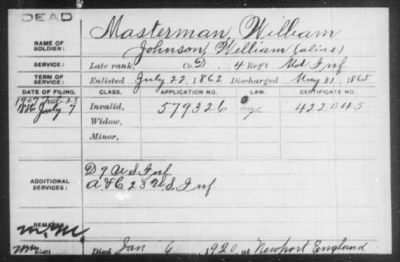 DEAD
Masterman, William
NAME OF SOLDIER:
Johnson, William (alias)
SERVICE:
Late rank, Co. D. 4 Reg't Md. Inf
TERM OF SERVICE:
Enlisted July 22, 1862 Discharged May 31, 1865
DATE OF FILING. CLASS. APPLICATION NO. LAW. CERTIFICATE NO.
1907 Feb. 23
July 7 Invalid, 579326 422045
Widow,
Minor,
ADDITIONAL SERVICES:
D 9 U.S. Inf
A & C 23 U.S. Inf
REMARKS:
Died Jan 6, 1920, at Newport England